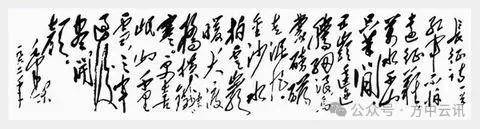 长征诗一首
红军不怕
远征难
万水千山
只等闲
五岭逶迤
腾细浪乌
蒙磅礴
走泥丸
金沙水
拍云崖
暖大渡
桥横铁索
寒更喜
岷山千里
雪三军
过后
尽开
颜
毛泽东
一九六二年
公众号·方中云讯